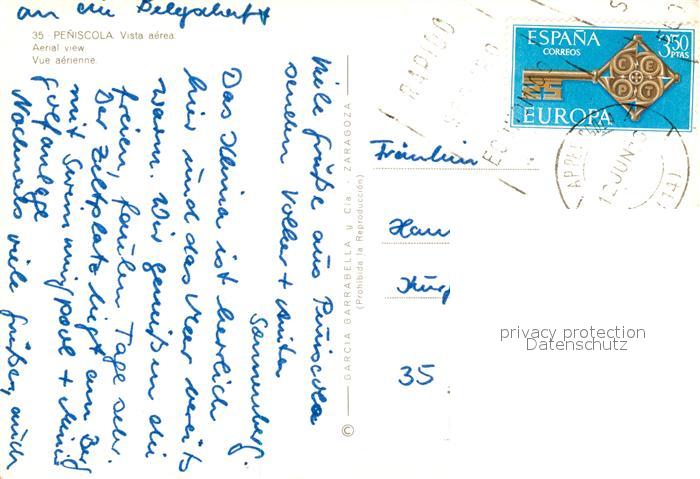 35 - PEÑISCOLA. Vista aérea.
Aerial view.
Vue aérienne.
Viele Grüße aus Peñiscola
senden Volker + Anita
Sonnenberg.
Das Klima ist herrlich
hier und das Meer bereits
warm. Wir genießen die
freien, faulen Tage sehr.
Der Zeltplatz liegt am Berg
mit Swimmingpool + Mini
golfanlage
Nochmals viele Grüße, auch
an die Belegschaft
GARCIA GARRABELLA y Cia. - ZARAGOZA
(Prohibida la Reproducción)
©
ESPAÑA
CORREOS
3'50
PTAS
CEPT
EUROPA
RAPIDO
JUN
Fräulein
Han
35
privacy protection
Datenschutz